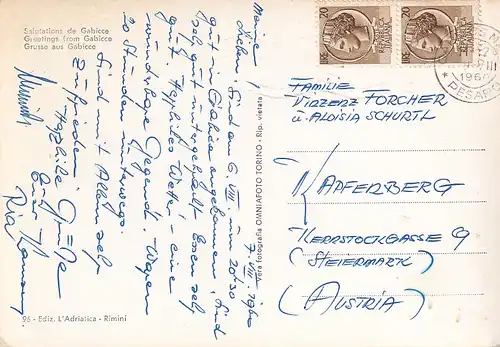 Salutations de Gabicce
Greetings from Gabicce
Grusse aus Gabicce
7. VIII. 1960
Meine
Lieben! Sind am 6. VIII. um 20h30
gut in Gabicce angekommen. Sind
sehr gut untergebracht. Essen sehr
gut. Herrliches Wetter - eine
wunderbare Gegend. Waren
10 Stunden unterwegs.
Sind mit Allem sehr
zufrieden.
Herzliche Grüße
Ria
Vera fotografia OMNIAFOTO TORINO - Rip. vietata
96 - Ediz. L'Adriatica - Rimini
20
20
1960
PESARO
FAMILIE
VINZENZ FORCHER
u. ALOISIA SCHURTL
KAPFENBERG
HERRSTOCKGASSE 9
(STEIERMARK)
(AUSTRIA)